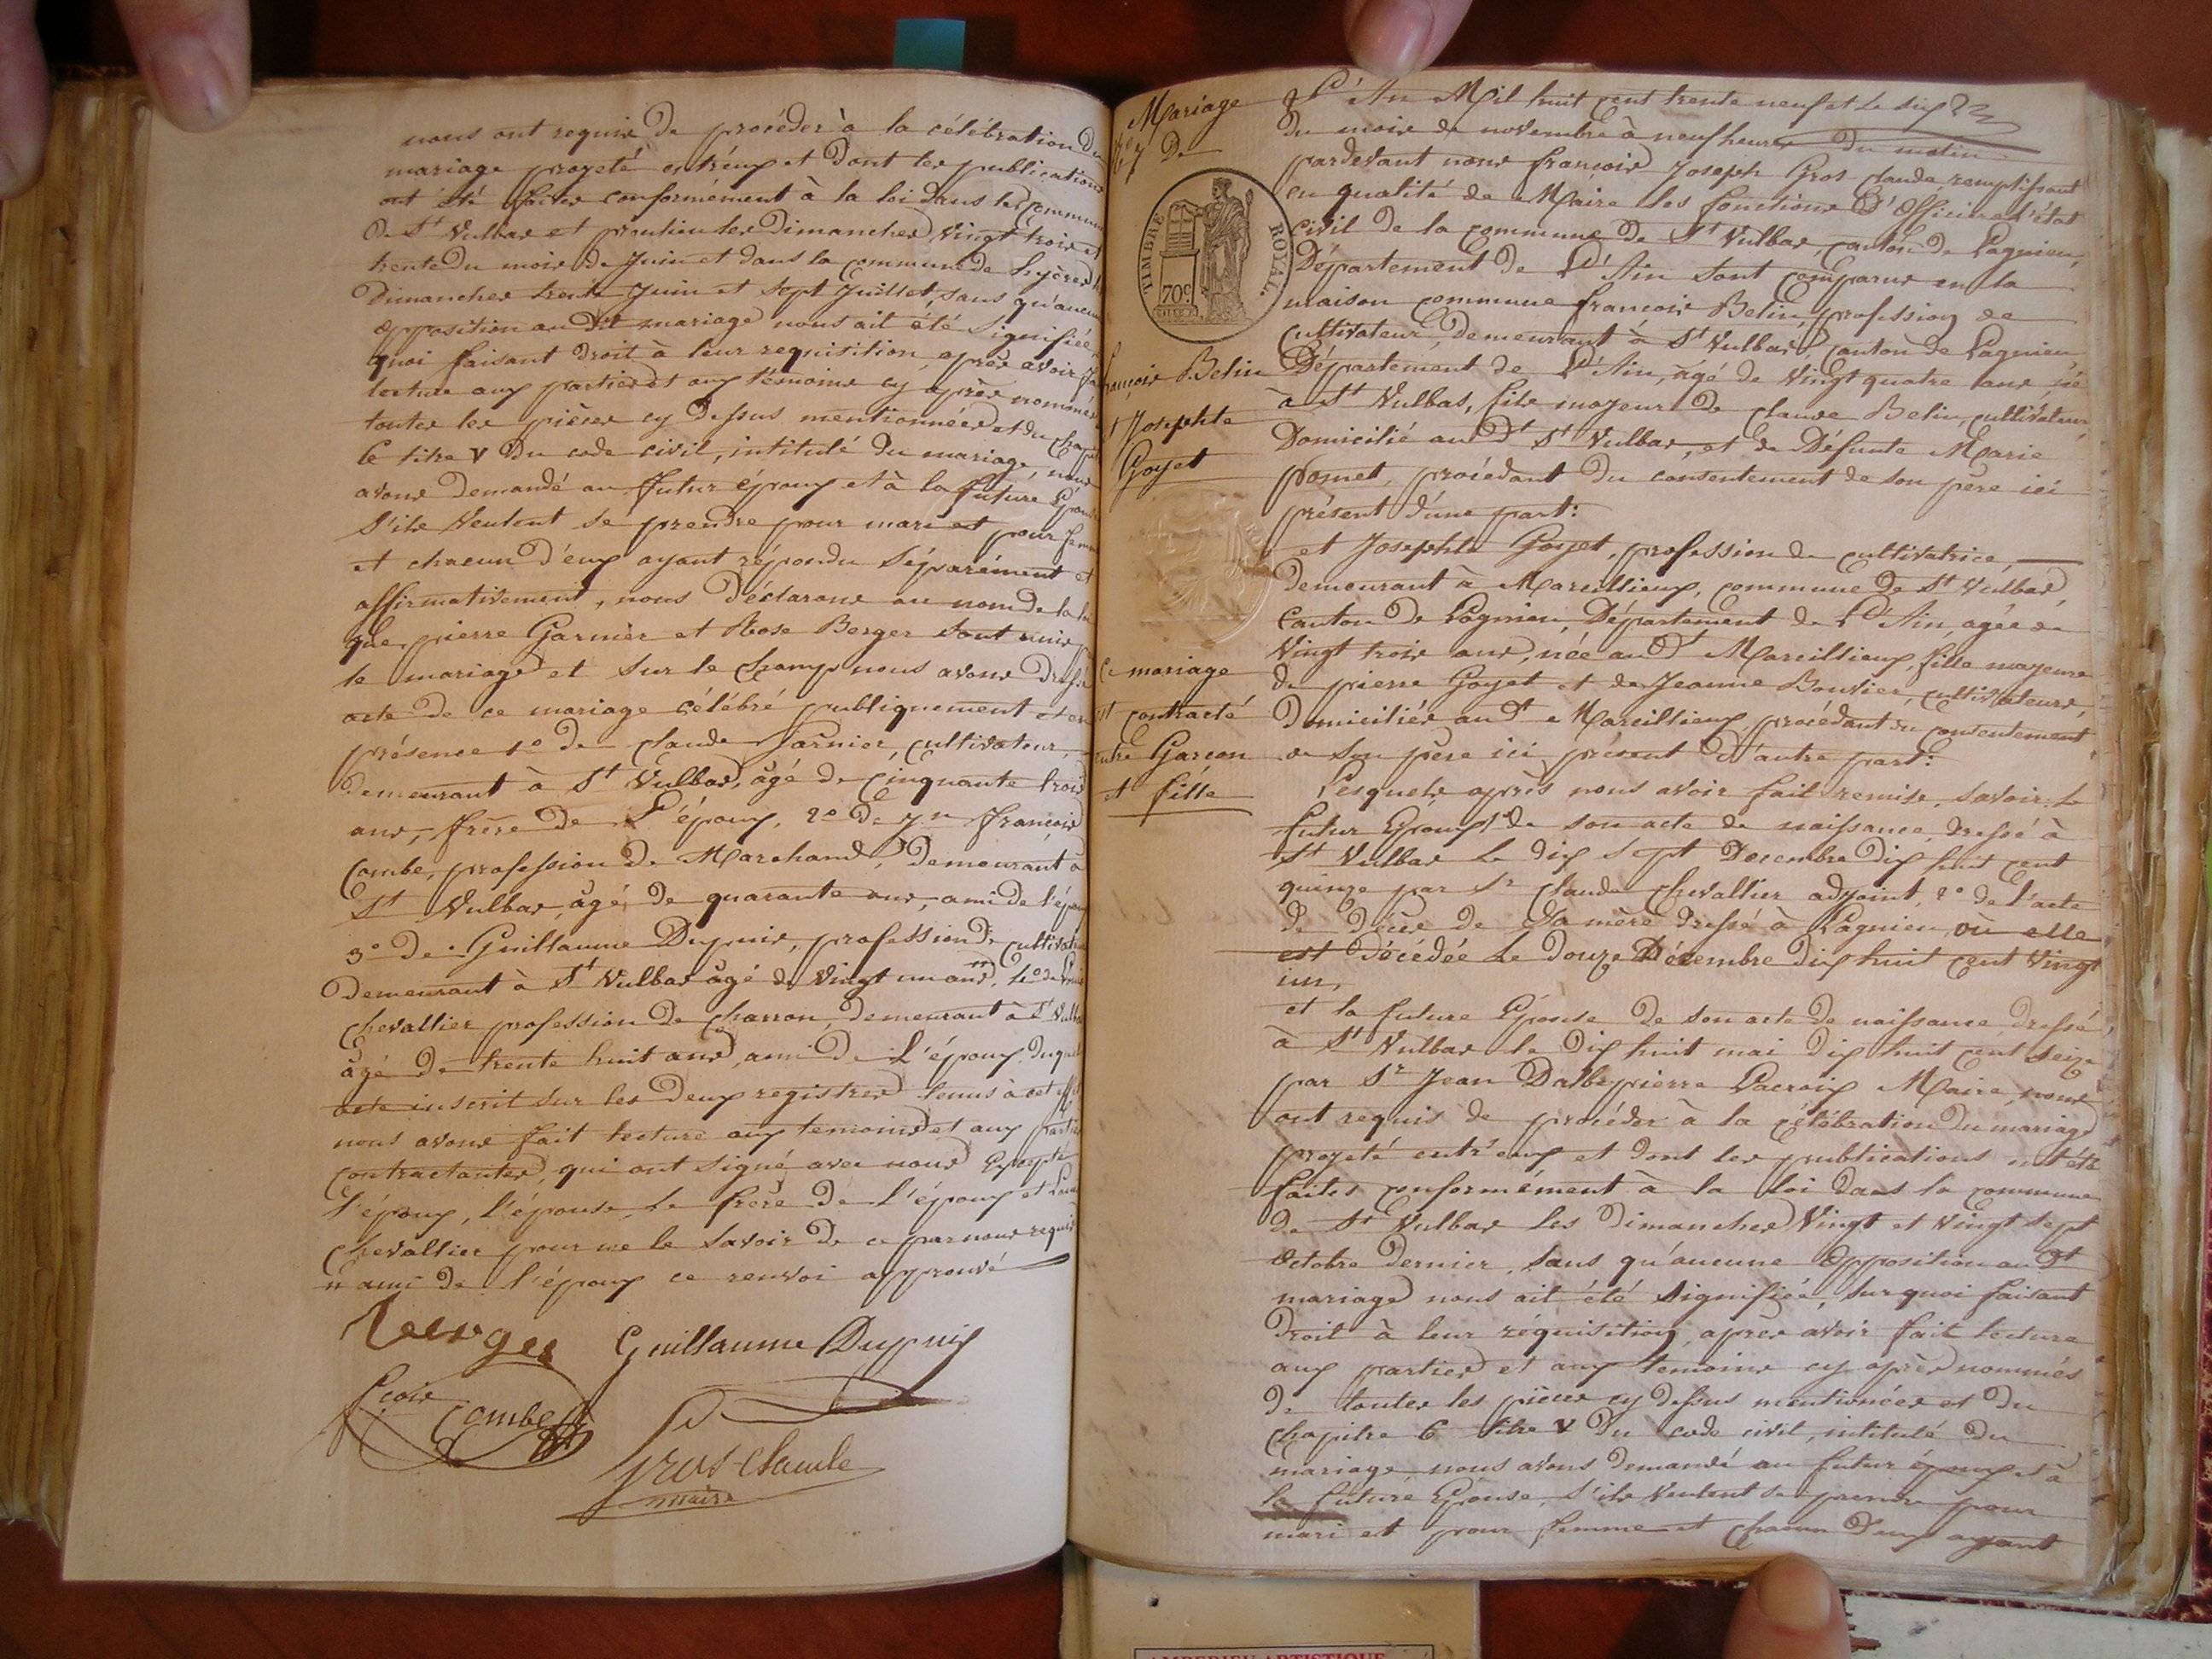 nous ont requis de procéder à la célébration du
mariage projeté entr'eux et dont les publications
ont été faites conformément à la loi dans les communes
de St Vulbas et proulieu les Dimanches vingt trois et
trente du mois de Juin et dans la commune de
Dimanches trente Juin et sept Juillet, sans qu'aucune
opposition au dit mariage nous ait été signifiée,
quoi faisant droit à leur requisition, après avoir
lecture aux parties et aux témoins cy après nommés
toutes les pièces cy dessus mentionnées et du
6 titre V du code civil, intitulé du mariage, nous
avons demandé au futur époux et à la future Epouse
s'ils veulent se prendre pour mari et pour femme
et chacun d'eux ayant répondu séparément et
affirmativement, nous déclarons au nom de la loi
que pierre Garnier et Rose Berger sont unis
le mariage et sur le champ nous avons dressé
acte de ce mariage célébré publiquement et en
présence 1o de claude Garnier, cultivateur,
demeurant à St Vulbas, âgé de cinquante trois
ans, frère de l'époux, 2o de françois
Combe, profession de Marchand, demeurant à
St Vulbas, âgé de quarante ans, ami de l'époux
3o de Guillaume Dupuis, profession de cultivateur
demeurant à St Vulbas âgé de vingt un ans, 4o de
chevallier profession de charron, demeurant à St Vulbas
âgé de trente huit ans, ami de l'époux. duquel
acte inscrit sur les deux registres tenus à cet effet
nous avons fait lecture aux temoins et aux parties
contractantes, qui ont signé avec nous Excepté
l'époux, l'épouse, le frère de l'époux et
chevallier pour ne le savoir de ce par nous requis
n ami de l'époux ce renvoi approuvé
Guillaume Dupuis
fçois Combe
Gros-claude
maire
Mariage
No 7 De
TIMBRE ROYAL.
70c
françois Belin
et Josephte
Goyet
Ce mariage
est contracté
entre Garcon
et fille
L'An Mil huit cent trente neuf et le dix
du mois de novembre à neuf heures du matin
pardevant nous françois Joseph Gros claude remplissant
en qualité de Maire les fonctions d'officier de l'état
civil de la commune de St Vulbas, canton de Lagnieu,
Département de L'Ain sont comparus en la
maison commune françois Belin, profession de
cultivateur, demeurant à St Vulbas, canton de Lagnieu
Département de L'Ain, âgé de vingt quatre ans, né
à St Vulbas, fils majeur de claude Belin, cultivateur,
Domicilié audt St Vulbas, et de Défunte Marie
pomet, procédant du consentement de son père ici
présent d'une part:
et Josephte Goyet, profession de cultivatrice,
demeurant à Marcillieux, commune de St Vulbas,
canton de Lagnieu, Département de L'Ain, agée de
vingt trois ans, née audt Marcillieux, fille majeure
de pierre Goyet et de Jeanne Bouvier, cultivateurs,
Domiciliés audt Marcillieux, procédant du consentement
de son père ici présent d'autre part:
Lesquels après nous avoir fait remise, savoir: Le
futur Epoux 1o de son acte de naissance, dressé à
St Vulbas le dix sept Decembre dix huit cent
quinze par Sr claude chevallier adjoint, 2o de l'acte
de Décès de sa mère dressé à Lagnieu où elle
est décédée Le douze Décembre dix huit cent vingt
un,
et la future Epouse de son acte de naissance, dressé,
à St Vulbas le dix huit mai dix huit cent seize
par Sr Jean Dalbepierre Lacroix Maire, nous
ont requis de procéder à la célébration du mariage
projeté entr'eux et dont les publications ont été
faites conformément à la loi dans la commune
de St Vulbas les Dimanches vingt et vingt sept
octobre dernier, sans qu'aucune opposition audt
mariage nous ait été signifiée, sur quoi faisant
droit à leur réquisition, après avoir fait lecture
aux parties et aux témoins cy après nommés
de toutes les pièces cy dessus mentionées et du
chapitre 6 titre V du code civil, intitulé du
mariage nous avons demandé au futur époux et à
la future Epouse, s'ils veulent se prendre pour
mari et pour femme et chacun d'eux ayant
AMBERIEU ARTISTIQUE